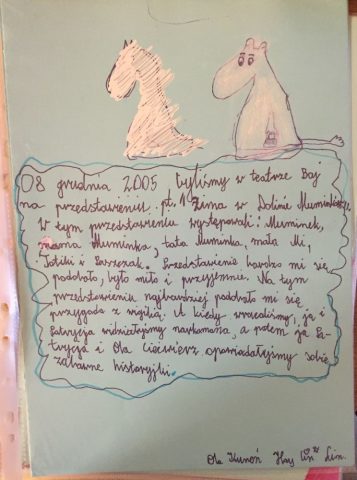 08 grudnia 2005 byliśmy w teatrze Baj
na przedstawieniu pt. "Zima w Dolinie Muminków".
W tym przedstawieniu występowali: Muminek,
mama Muminka, tata Muminka, mała Mi,
Totiki i Paszczak. Przedstawienie bardzo mi się
podobało, było miło i przyjemnie. Na tym
przedstawieniu najbardziej podobało mi się
przygoda z wigilią. A kiedy wracaliśmy, ja i
Patrycja widziałyśmy narkomana, a potem ja Pa-
trycja i Ola Ciećwierz opowiadałyśmy sobie
zabawne historyjki.
Ola